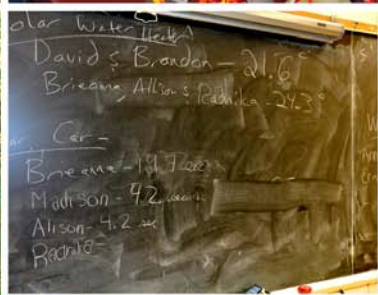 olar Water Heater
David & Brandon - 21.6°
Brieanna, Allison & Radhika - 24.3°
Car -
Brieanna - 
Madison - 4.2
Alison - 4.2 sec
Radhika -